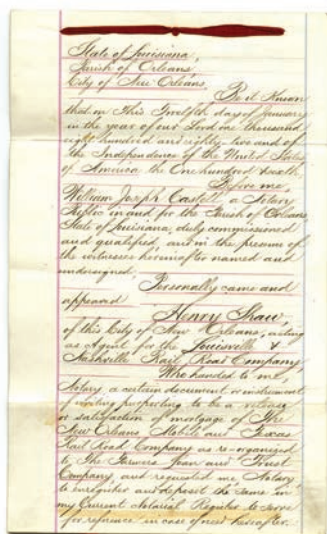 State of Louisiana,
Parish of Orleans,
City of New Orleans,
Be it Known
that on this Twelfth day of January
in the year of our Lord one thousand
eight hundred and eighty-two and of
the Independence of the United States
of America the One hundred & sixth,
Before me,
William Joseph Castell a Notary
Public in and for the Parish of Orleans
State of Louisiana, duly commissioned
and qualified, and in the presence of
the witnesses hereinafter named and
undersigned,
Personally came and
appeared
Henry Shaw,
of this City of New Orleans, acting
as Agent for the Louisville &
Nashville Rail Road Company,
Who handed to me,
Notary a certain document or instrument
of writing purporting to be a release
or satisfaction of mortgage of The
New Orleans Mobile and Texas
Rail Road Company as re-organized
to The Farmers Loan and Trust
Company, and requested me, Notary
to enregister and deposit the same in
my Current Notarial Register to serve
for reference in case of need hereafter.